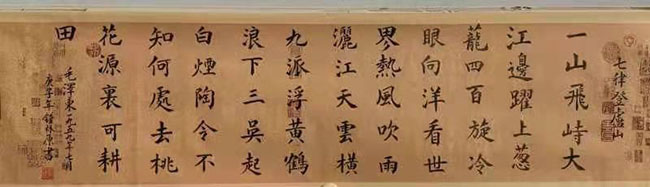 七律登廬山
一山飛峙大
江邊躍上葱
蘢四百旋冷
眼向洋看世
界熱風吹雨
灑江天雲橫
九派浮黃鶴
浪下三吳起
白煙陶令不
知何處去桃
花源裏可耕
田
毛澤東一九五九年七月
庚子年 書